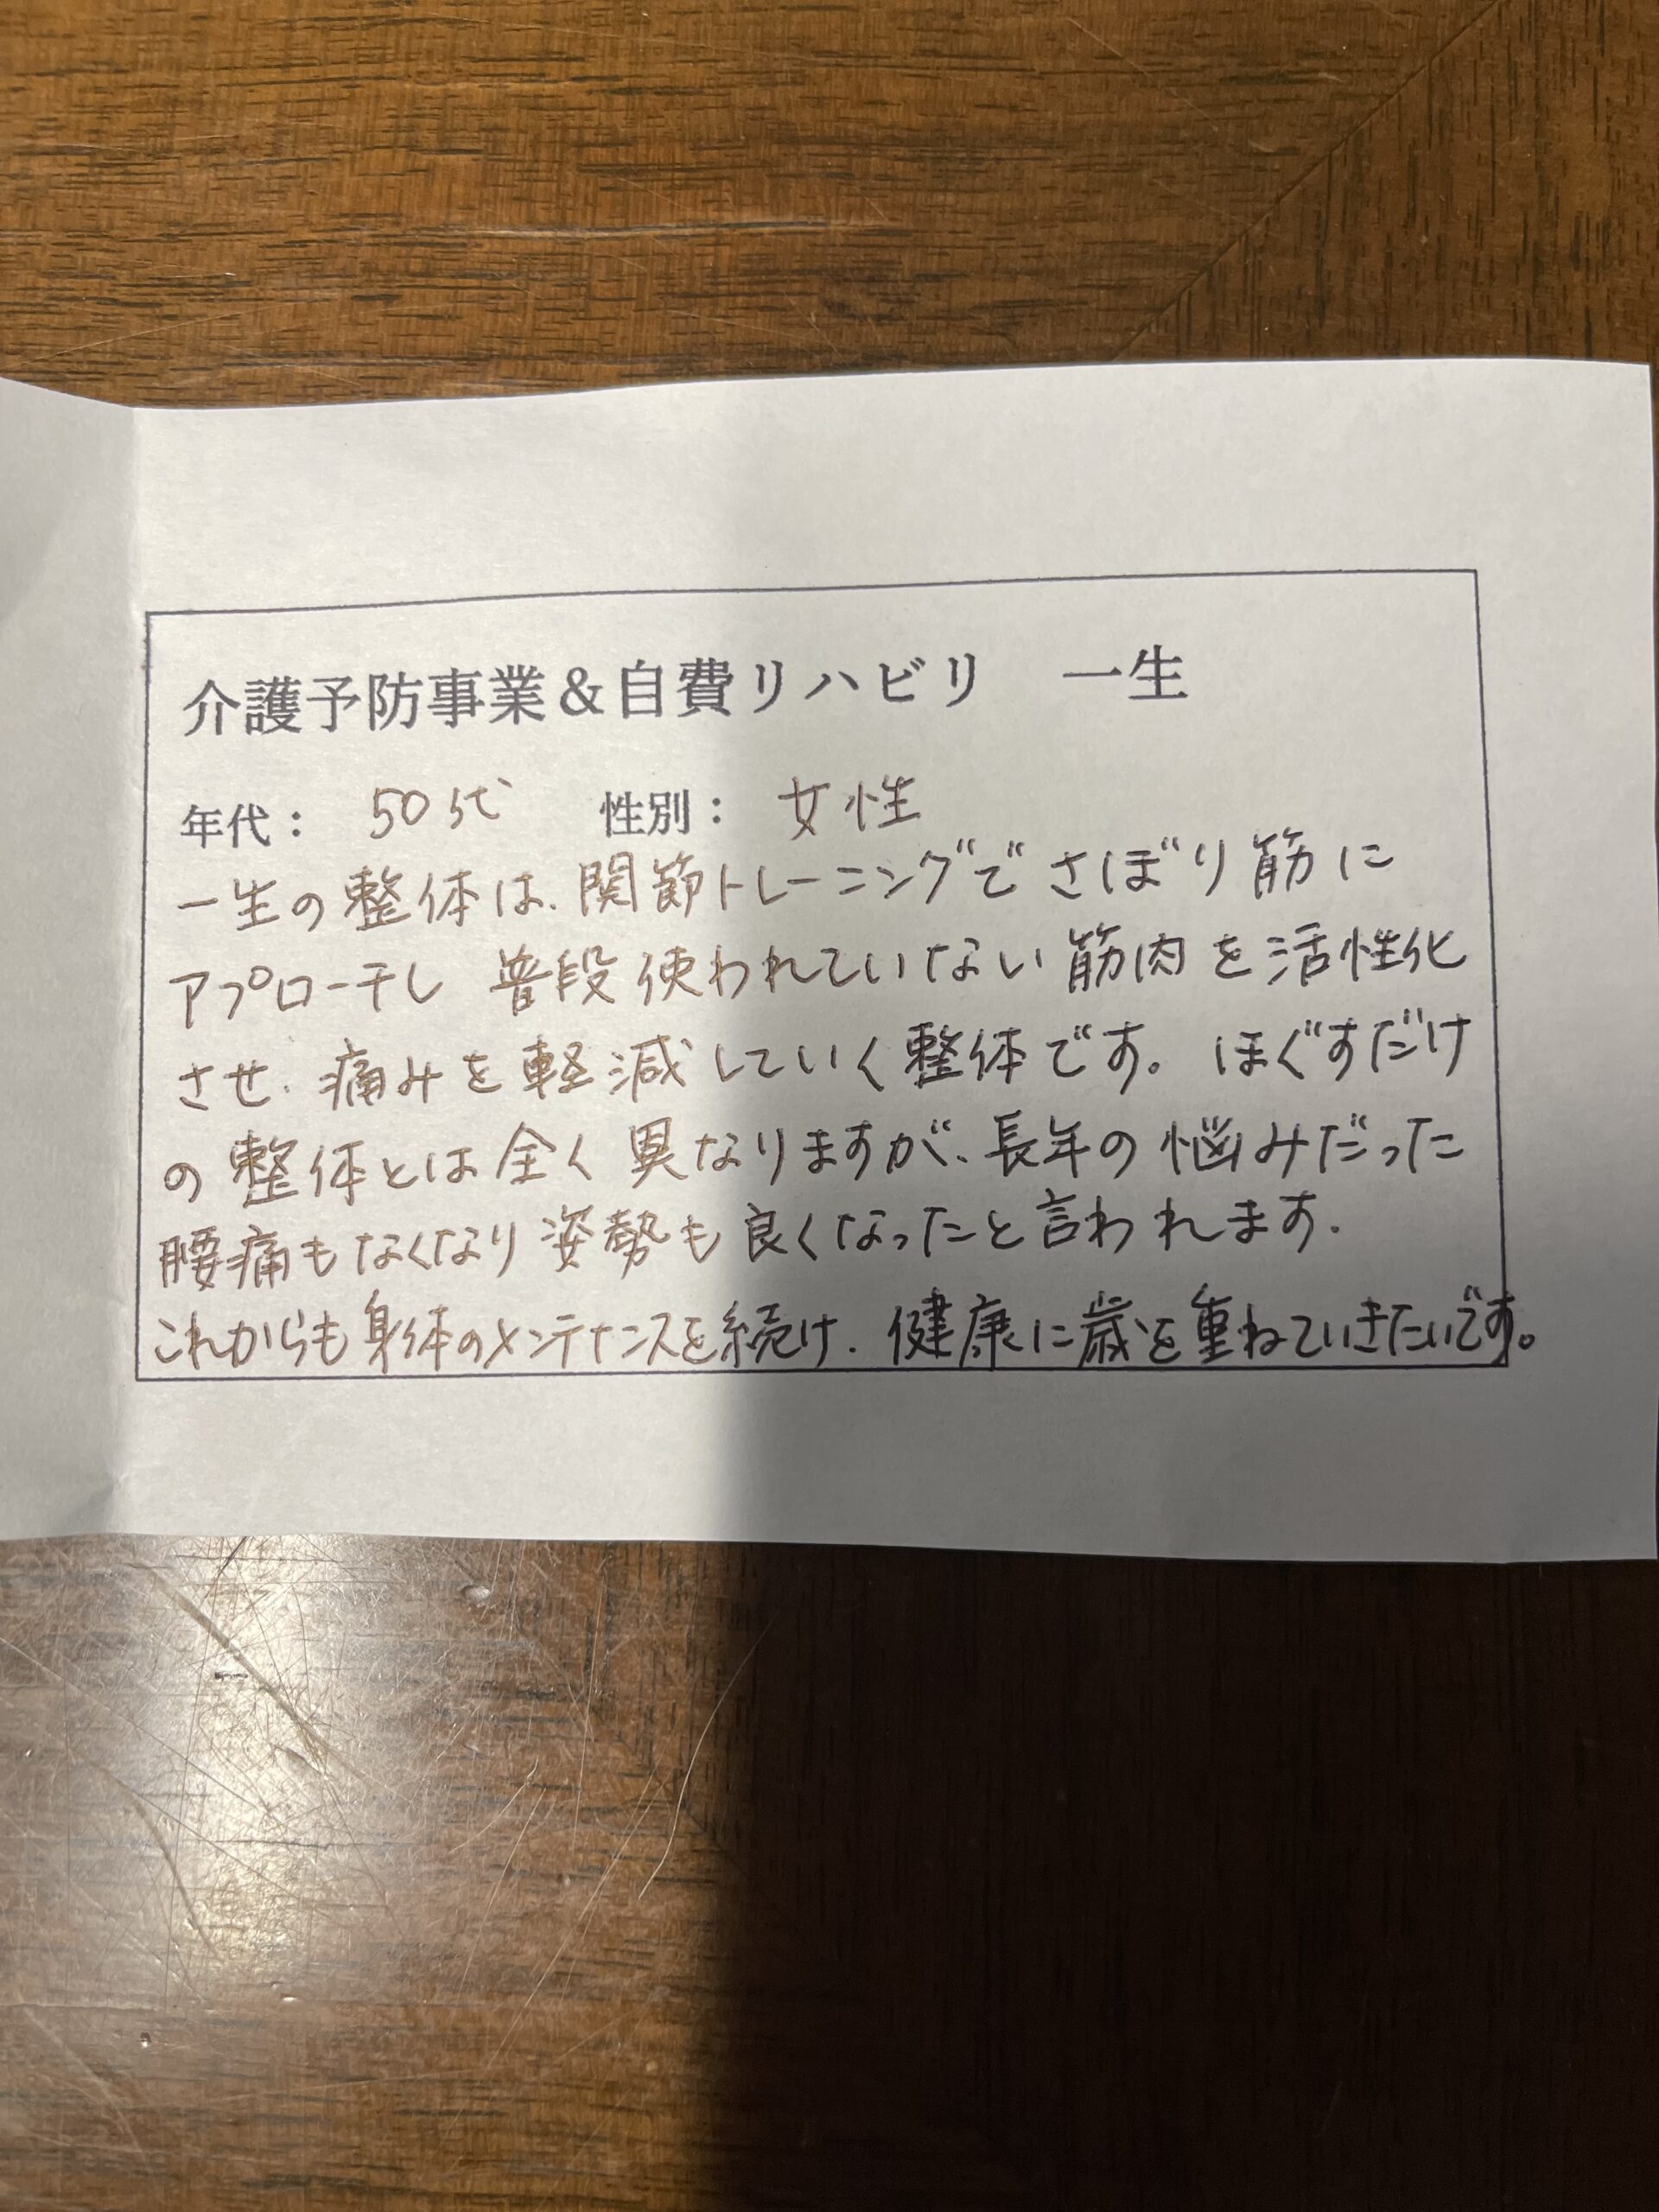 介護予防事業＆自費リハビリ　一生
年代： 50代 性別： 女性
一生の整体は、関節トレーニングでさぼり筋に
アプローチし 普段使われていない筋肉を活性化
させ、痛みを軽減していく整体です。ほぐすだけ
の整体とは全く異なりますが、長年の悩みだった
腰痛もなくなり姿勢も良くなったと言われます．
これからも身体のメンテナンスを続け、健康に歳を重ねていきたいです。